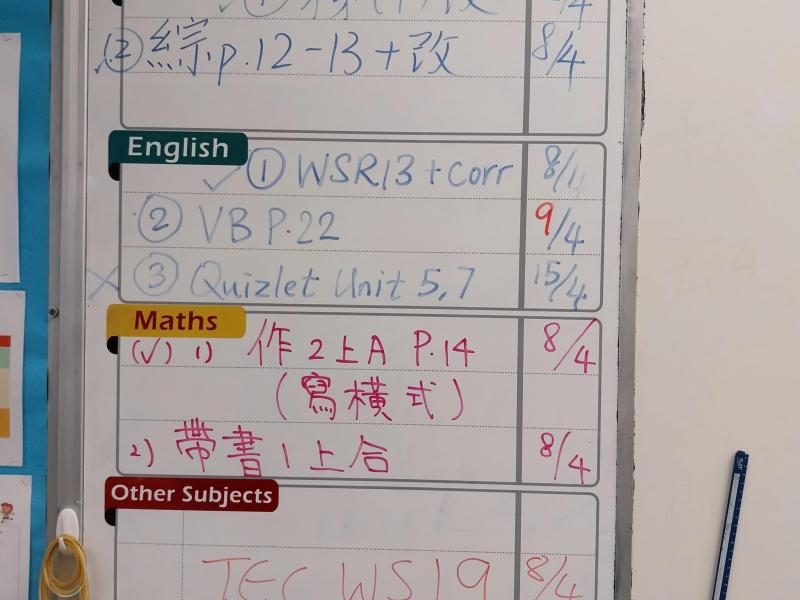 ② 綜 p.12-13+改 8/4
English
✓ ① WSR13+Corr 8/4
② VB P.22 9/4
✗ ③ Quizlet Unit 5,7 15/4
Maths
(✓) 1) 作2上A P.14 8/4
(寫橫式)
2) 帶書1上合 8/4
Other Subjects
TEC WS19 8/4